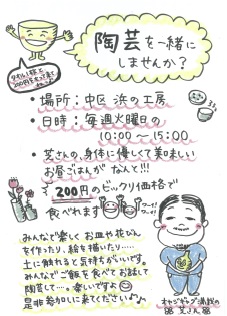 陶芸を一緒に
しませんか?
・場所:中区 浜の工房
・日時:毎週火曜日の
10:00〜15:00
・芝さんの、身体に優しくて美味しい
お昼ごはんが なんと!!!
200円のビックリ価格で
食べれます
ワーイ!
ワーイ!
みんなで楽しく お皿や花びん
を作ったり、絵を描いたり……
土に触れると気持ちがいいです。
みんなでご飯を食べてお話して
陶芸して…。楽しいですよ
是非参加しに来てくださいよ♪♪
オヤジギャグ満載の
芝さん